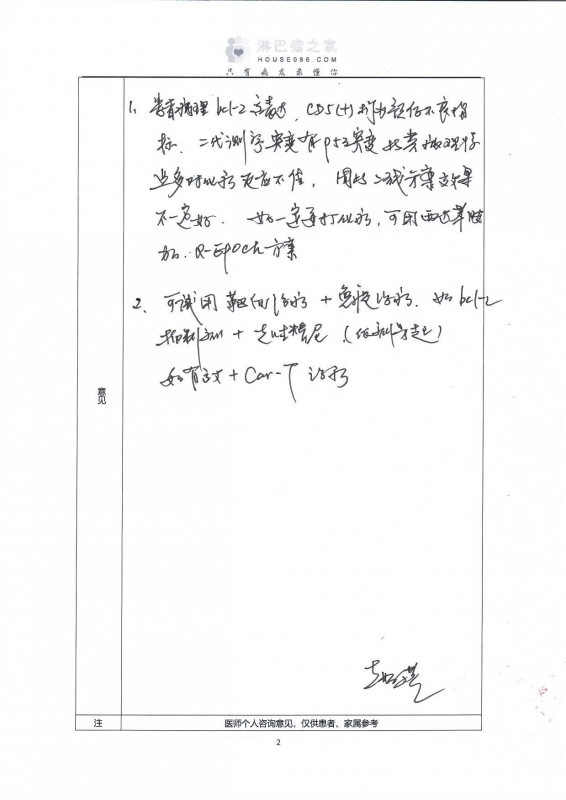 淋巴瘤之家
HOUSE086.COM
只有病友最懂你
1、患者病理 bcl-2 高表达，CD5(+) 均为预后不良指
标。二代测序突变有 p53突变
对化疗反应不佳，因此二线方案效果
不一定好。如一定再打化疗，可用西达苯胺
加 R-EPOCH 方案
2、可试用靶向治疗 + 免疫治疗。如 bcl-2
抑制剂 +
如有效 + Car-T 治疗
意见
注 医师个人咨询意见，仅供患者、家属参考
2